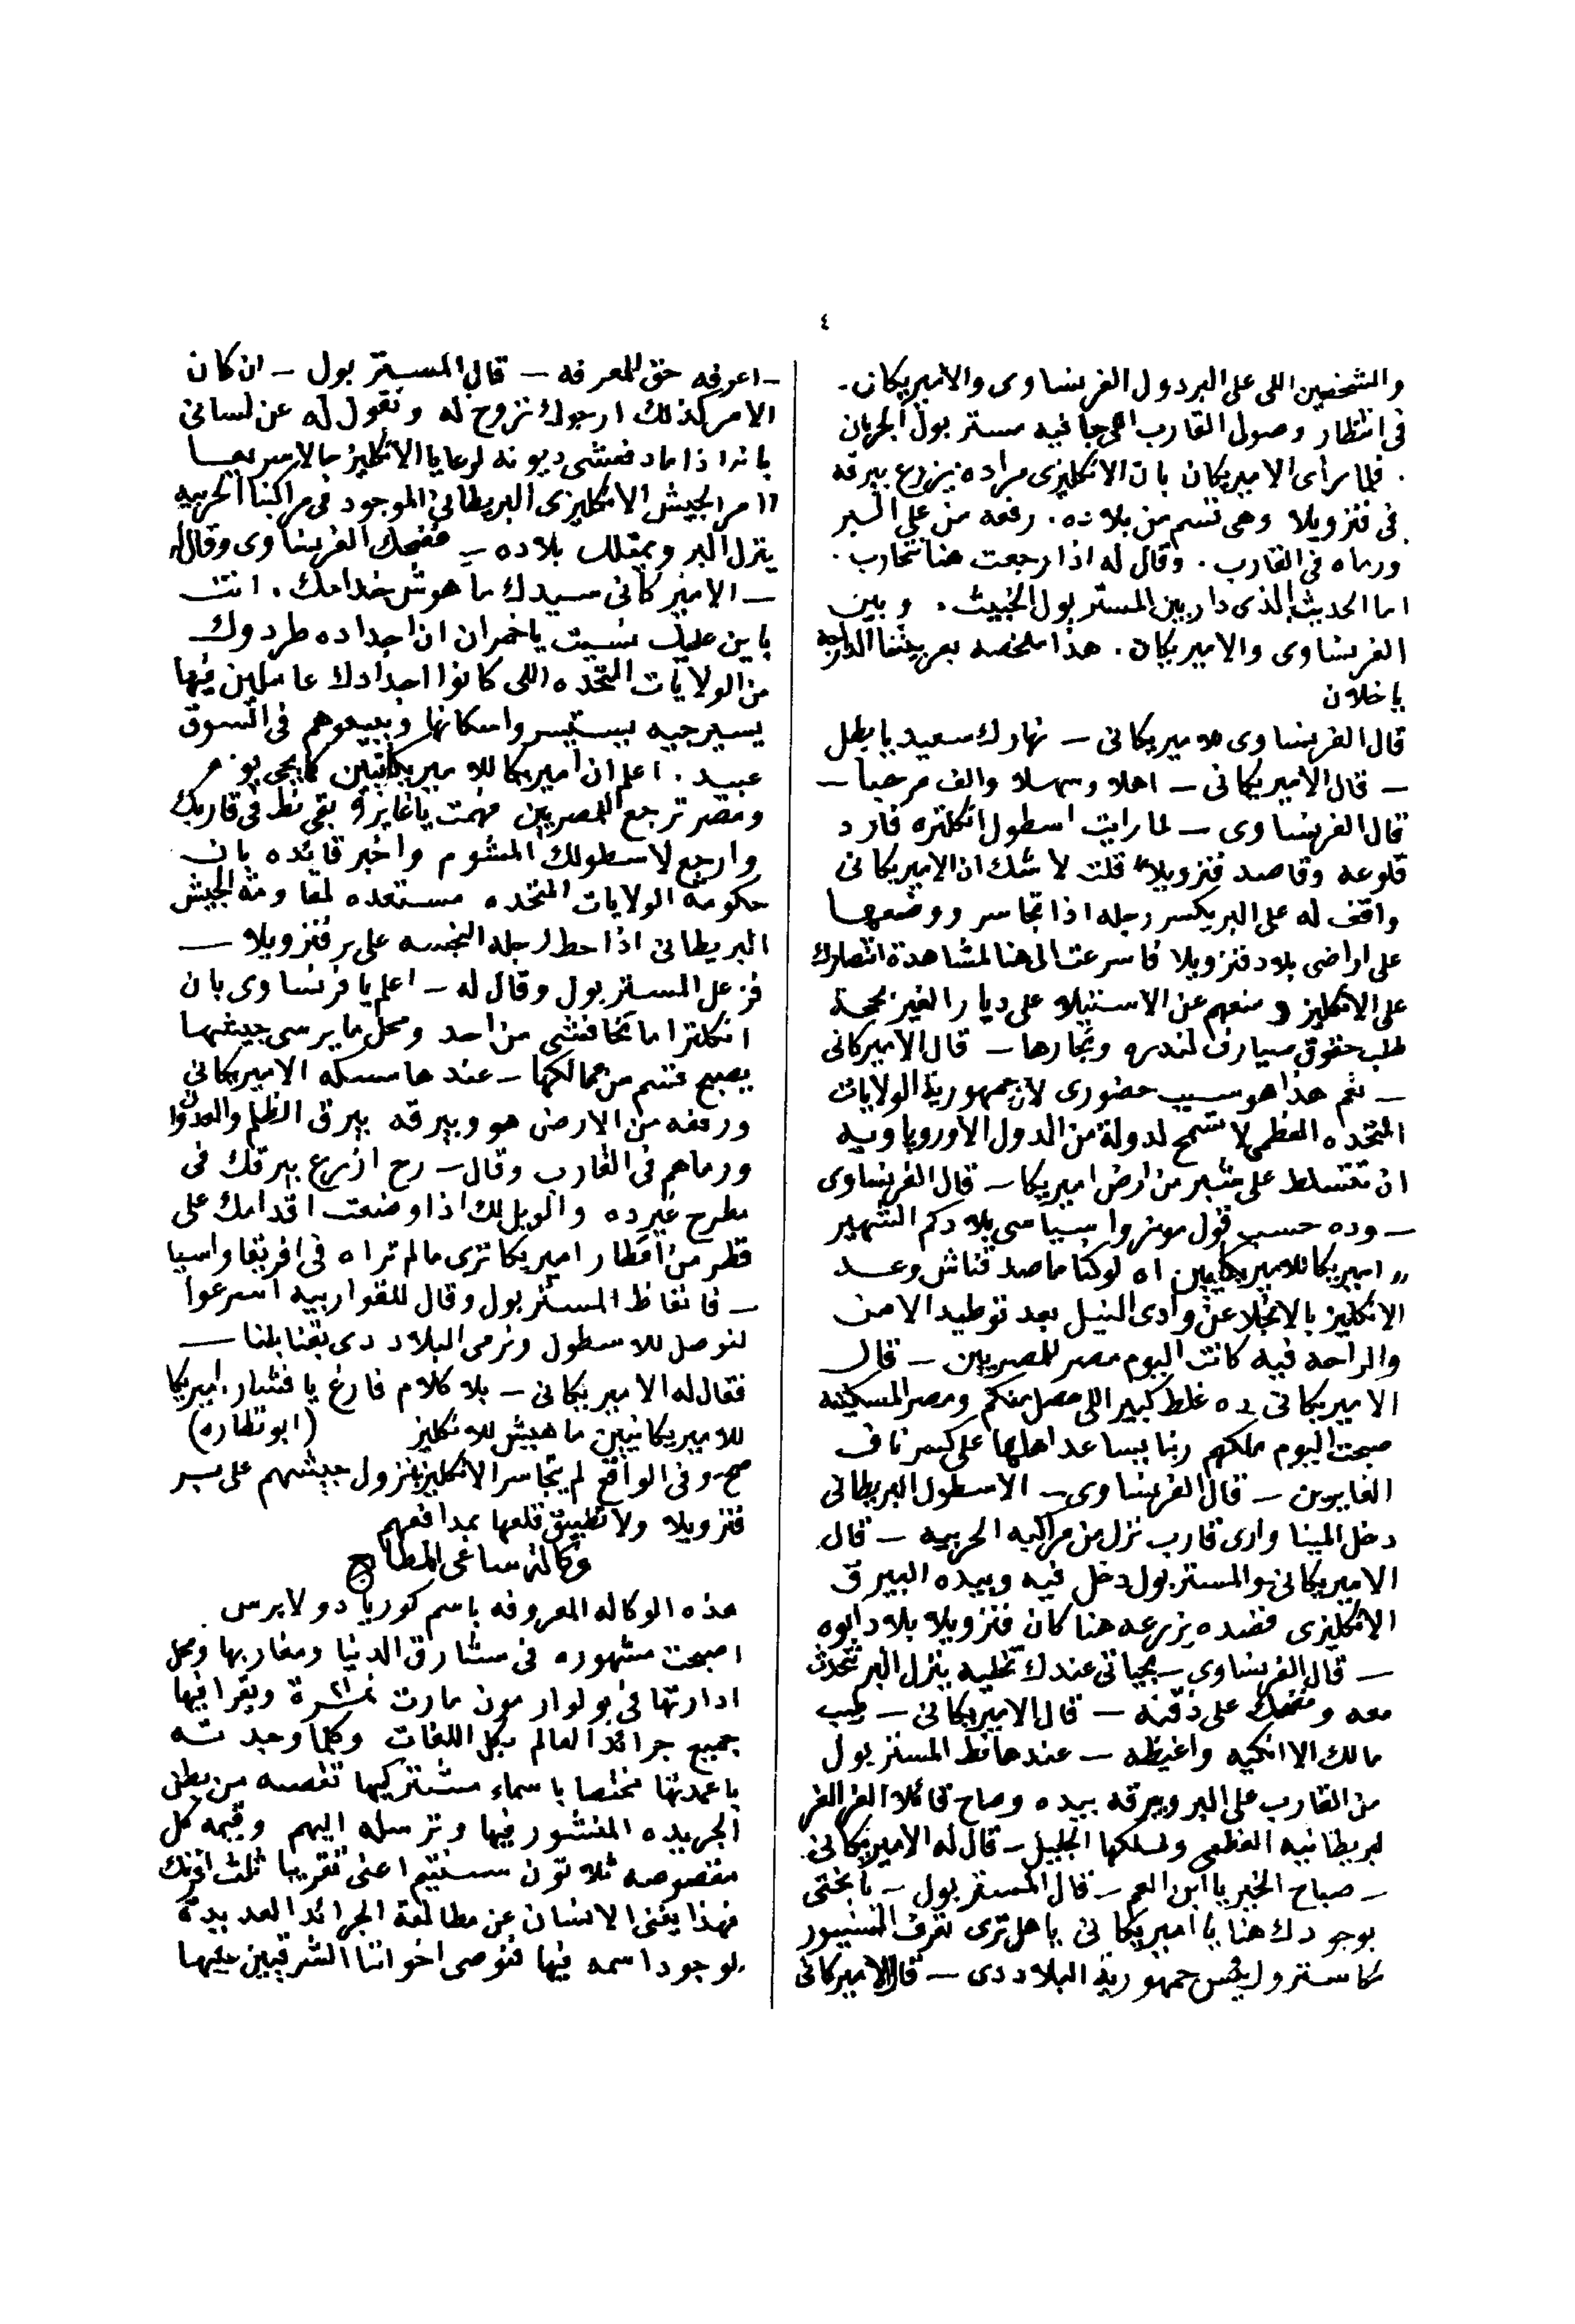 ٤
والشخصين اللى على البر دول الفرنساوى والاميريكانى.
فى انتظار وصول القارب اللى جا فيه مستر بول الجربان
. فلما رأى الاميريكان بان الانكليزى مراده يزرع بيرقه
فى فنزويلا وهى قسم من بلاده. رفعه من على البر
ورماه فى القارب. وقال له اذا رجعت هنا نتحارب.
اما الحديث الذى دار بين المستر بول الخبيث. وبين
الفرنساوى والاميريكان. هذا ملخصه بعربيتنا الدارجه
يا خلان
قال الفرنساوى للاميريكانى – نهارك سعيد يا بطل
– قال الاميريكانى – اهلا وسهلا والف مرحبا –
قال الفرنساوى – لما رايت اسطول انكلتره فارد
قلوعه وقاصد فنزويلا قلت لا شك ان الاميريكانى
واقف له على البر يكسر رجله اذا تجاسر ووضعها
على اراضى بلاد فنزويلا فاسرعت الى هنا لمشاهدة انتصارك
على الانكليز ومنعهم عن الاستيلاء على ديار الغير بحجة
طلب حقوق صيارف لندره وتجارها – قال الاميركانى
– نعم هذا هو سبب حضورى لان جمهورية الولايات
المتحده العظمى لا تسمح لدولة من الدول الاوروپاويه
ان تتسلط على شبر من ارض اميريكا – قال الفرنساوى
– وده حسب قول مونروا سياسى بلادكم الشهير
„ اميريكا للاميريكانيين اه لو كنا ما صدقناش وعد
الانكليز بالانجلا عن وادى النيل بعد توطيد الامن
والراحه فيه كانت اليوم مصر للمصريين – قال
الاميريكانى ده غلط كبير اللى حصل منكم ومصر المسكينه
صبحت اليوم ملكهم ربنا يساعد اهلها على كسر ناف
الغابوين – قال الفرنساوى – الاسطول البريطانى
دخل المينا وارى قارب نزل من مراكبه الحربيه – قال
الاميريكانى والمستر بول دخل فيه وبيده البيرق
الانكليزى قصده يزرعه هنا كان فنزويلا بلاد ابوه
– قال الفرنساوى – بحياتى عندك تخليه ينزل البر نتحدث
معه ونضحك على ذقنه – قال الاميريكانى – طيب
مالك الا انكيه واغيظه – عندها نط المستر بول
من القارب على البر وبيرقه بيده وصاح قائلا الفز الفز
لبريطانيه العظمى ولملكها الجليل – قال له الاميريكانى
– صباح الخير يا ابن العم – قال المستر بول – يا بختى
بوجودك هنا يا اميريكانى يا هل ترى تعرف السنيور
كاسترو رئيس جمهورية البلاد دى – قال الاميركانى
– اعرفه حق المعرفه – قال المستر بول – ان كان
الامر كذلك ارجوك تروح له وتقول له عن لسانى
بانه اذا ما دفعشى ديونه لرعايا الانكليز حالا سريعا
اامر الجيش الانكليزى البريطانى الموجود فى مراكبنا الحربيه
ينزل البر ويمتلك بلاده – فضحك الفرنساوى وقال له
– الاميركانى سيدك ما هوش خدامك. انت
باين عليك نسيت يا خمران ان اجداده طردوك
من الولايات المتحده اللى كانوا اجدادك عاملين فيها
يسير جيه يستيسروا سكانها ويبيعوهم فى السوق
عبيد. اعلم ان اميريكا للاميريكانيين كما يجى يوم
ومصر ترجع للمصريين فهمت يا غاير قوم بقى نط فى قاربك
وارجع لاسطولك المشوم واخبر قائده بان
حكومة الولايات المتحده مستعده لمقاومة الجيش
البريطانى اذا حط رجله النجسه على بر فنزويلا –
فزعل المستر بول وقال له – اعلم يا فرنساوى بان
انكلترا ما تخافشى من احد ومحل ما يرسى جيشها
يصبح قسم من ممالكها – عندها مسكه الاميريكانى
ورفعه من الارض هو وبيرقه بيرق الظلم والعدوان
ورماهم فى القارب وقال – رح ازرع بيرقك فى
مطرح غير ده والويل لك اذا وضعت اقدامك على
قطر من اقطار اميريكا ترى مالم تراه فى افريقا واسيا
– فانغاظ المستر بول وقال للقواربيه اسرعوا
لنوصل للاسطول ونرمى البلاد دى بقنابلنا –
فقال له الاميريكانى – بلا كلام فارغ يا فشار. اميريكا
للاميريكانيين ما هيش للانكليز (ابو نظاره)
صح وفى الواقع لم يتجاسر الانكليز بنزول جيشهم على بر
فنزويلا ولا تطبيق قلعها بمدافعهم
وكالة ساغى المطابع
هذه الوكاله المعروفه باسم كوريا دو لا پرس
اصبحت مشهوره فى مشارق الدنيا ومغاربها ومحل
ادارتها فى بولوار مون مارت نمرة ٢١ ويقرا فيها
جميع جرائد العالم بكل اللغات وكلما وجدته
باعمدتها مختصا باسماء مشتركيها تقصه من بطن
الجريده المنشور فيها وترسله اليهم وقيمه كل
مقصوصه ثلاثون سنتيم اعنى تقريبا ثلث افرنك
فهذا يغنى الانسان عن مطالعة الجرائد العديدة
لوجود اسمه فيها فنوصى اخواننا الشرقيين عليها